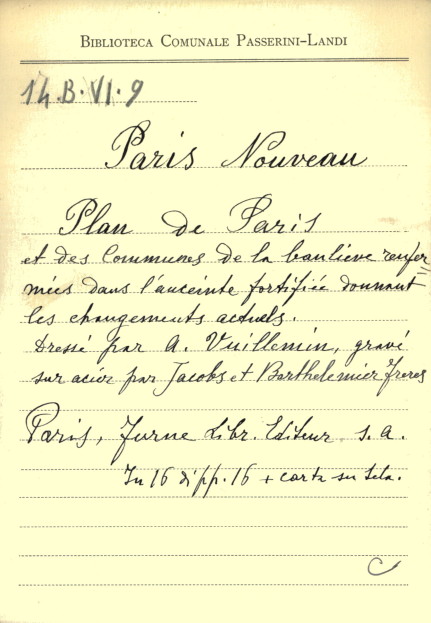 BIBLIOTECA COMUNALE PASSERINI-LANDI
14.B.VI.9
Paris Nouveau
Plan de Paris
et des Communes de la banlieve renfer
mées dans l'anceinte fortifiée donnant
les changements actuels.
Dressé par A. Vuillemin, gravé
sur acier par Jacobs et Barthelemier freres
Paris, Furne Libr. Editeur s.a.
In 16 di pp. 16 + carta su tela.
C